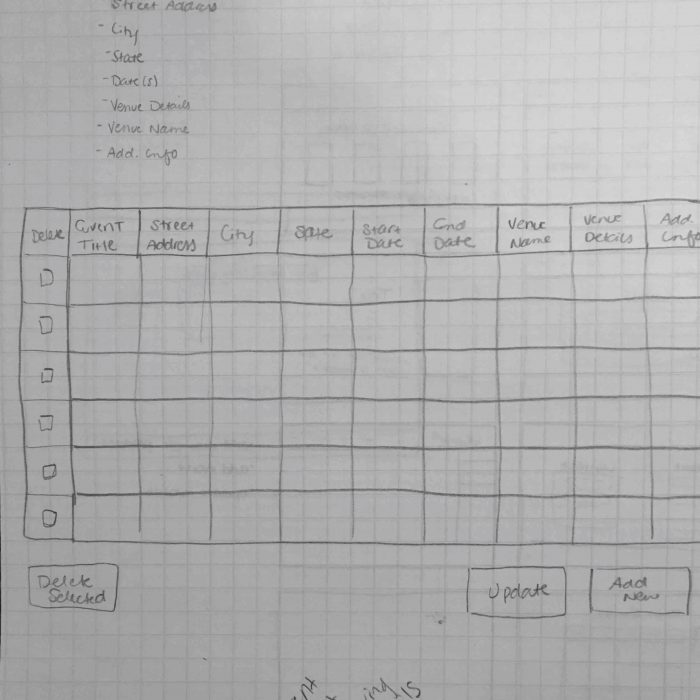 Street Address
- City
- State
- Date(s)
- Venue Details
- Venue Name
- Add. Info
Delete
Event Title
Street Address
City
State
Start Date
End Date
Venue Name
Venue Details
Add. Info
Delete Selected
Update
Add New